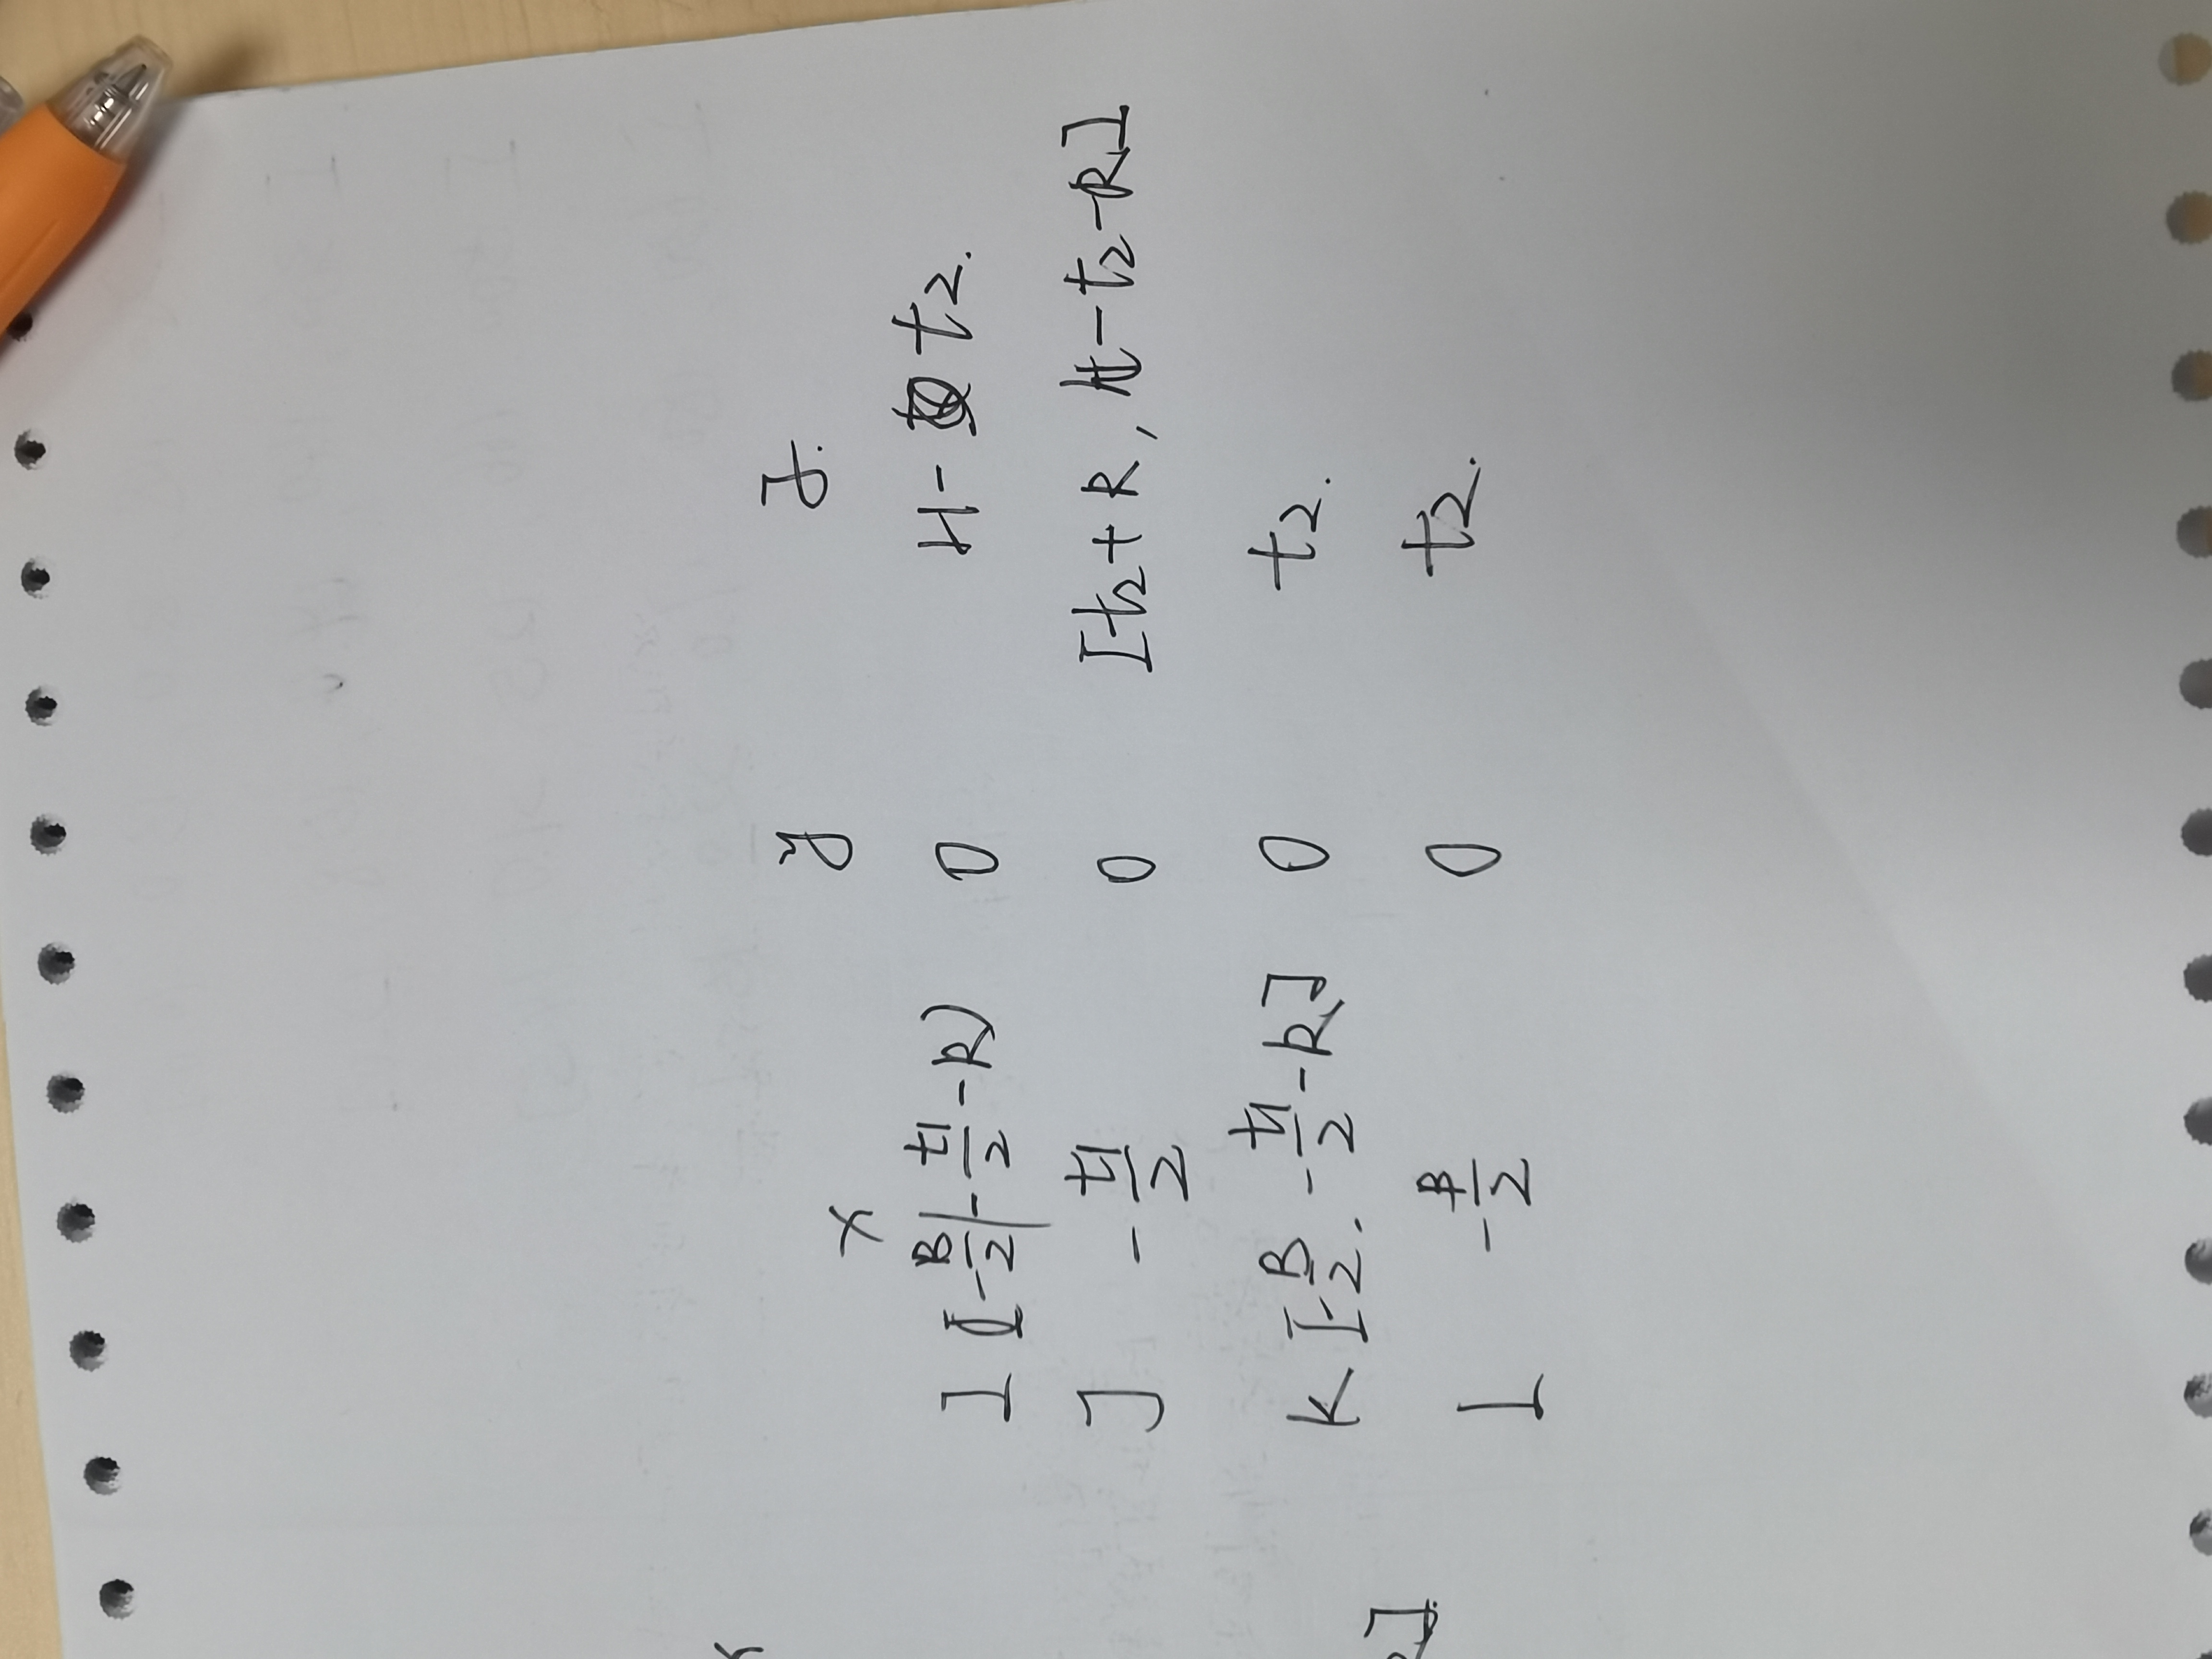 x y z.
I [-B/2, -t1/2 -R) 0 H- t2.
J -t1/2 0 [t2+R, H-t2-R]
K [-B/2, -t1/2 -R] 0 t2.
L -B/2 0 t2.